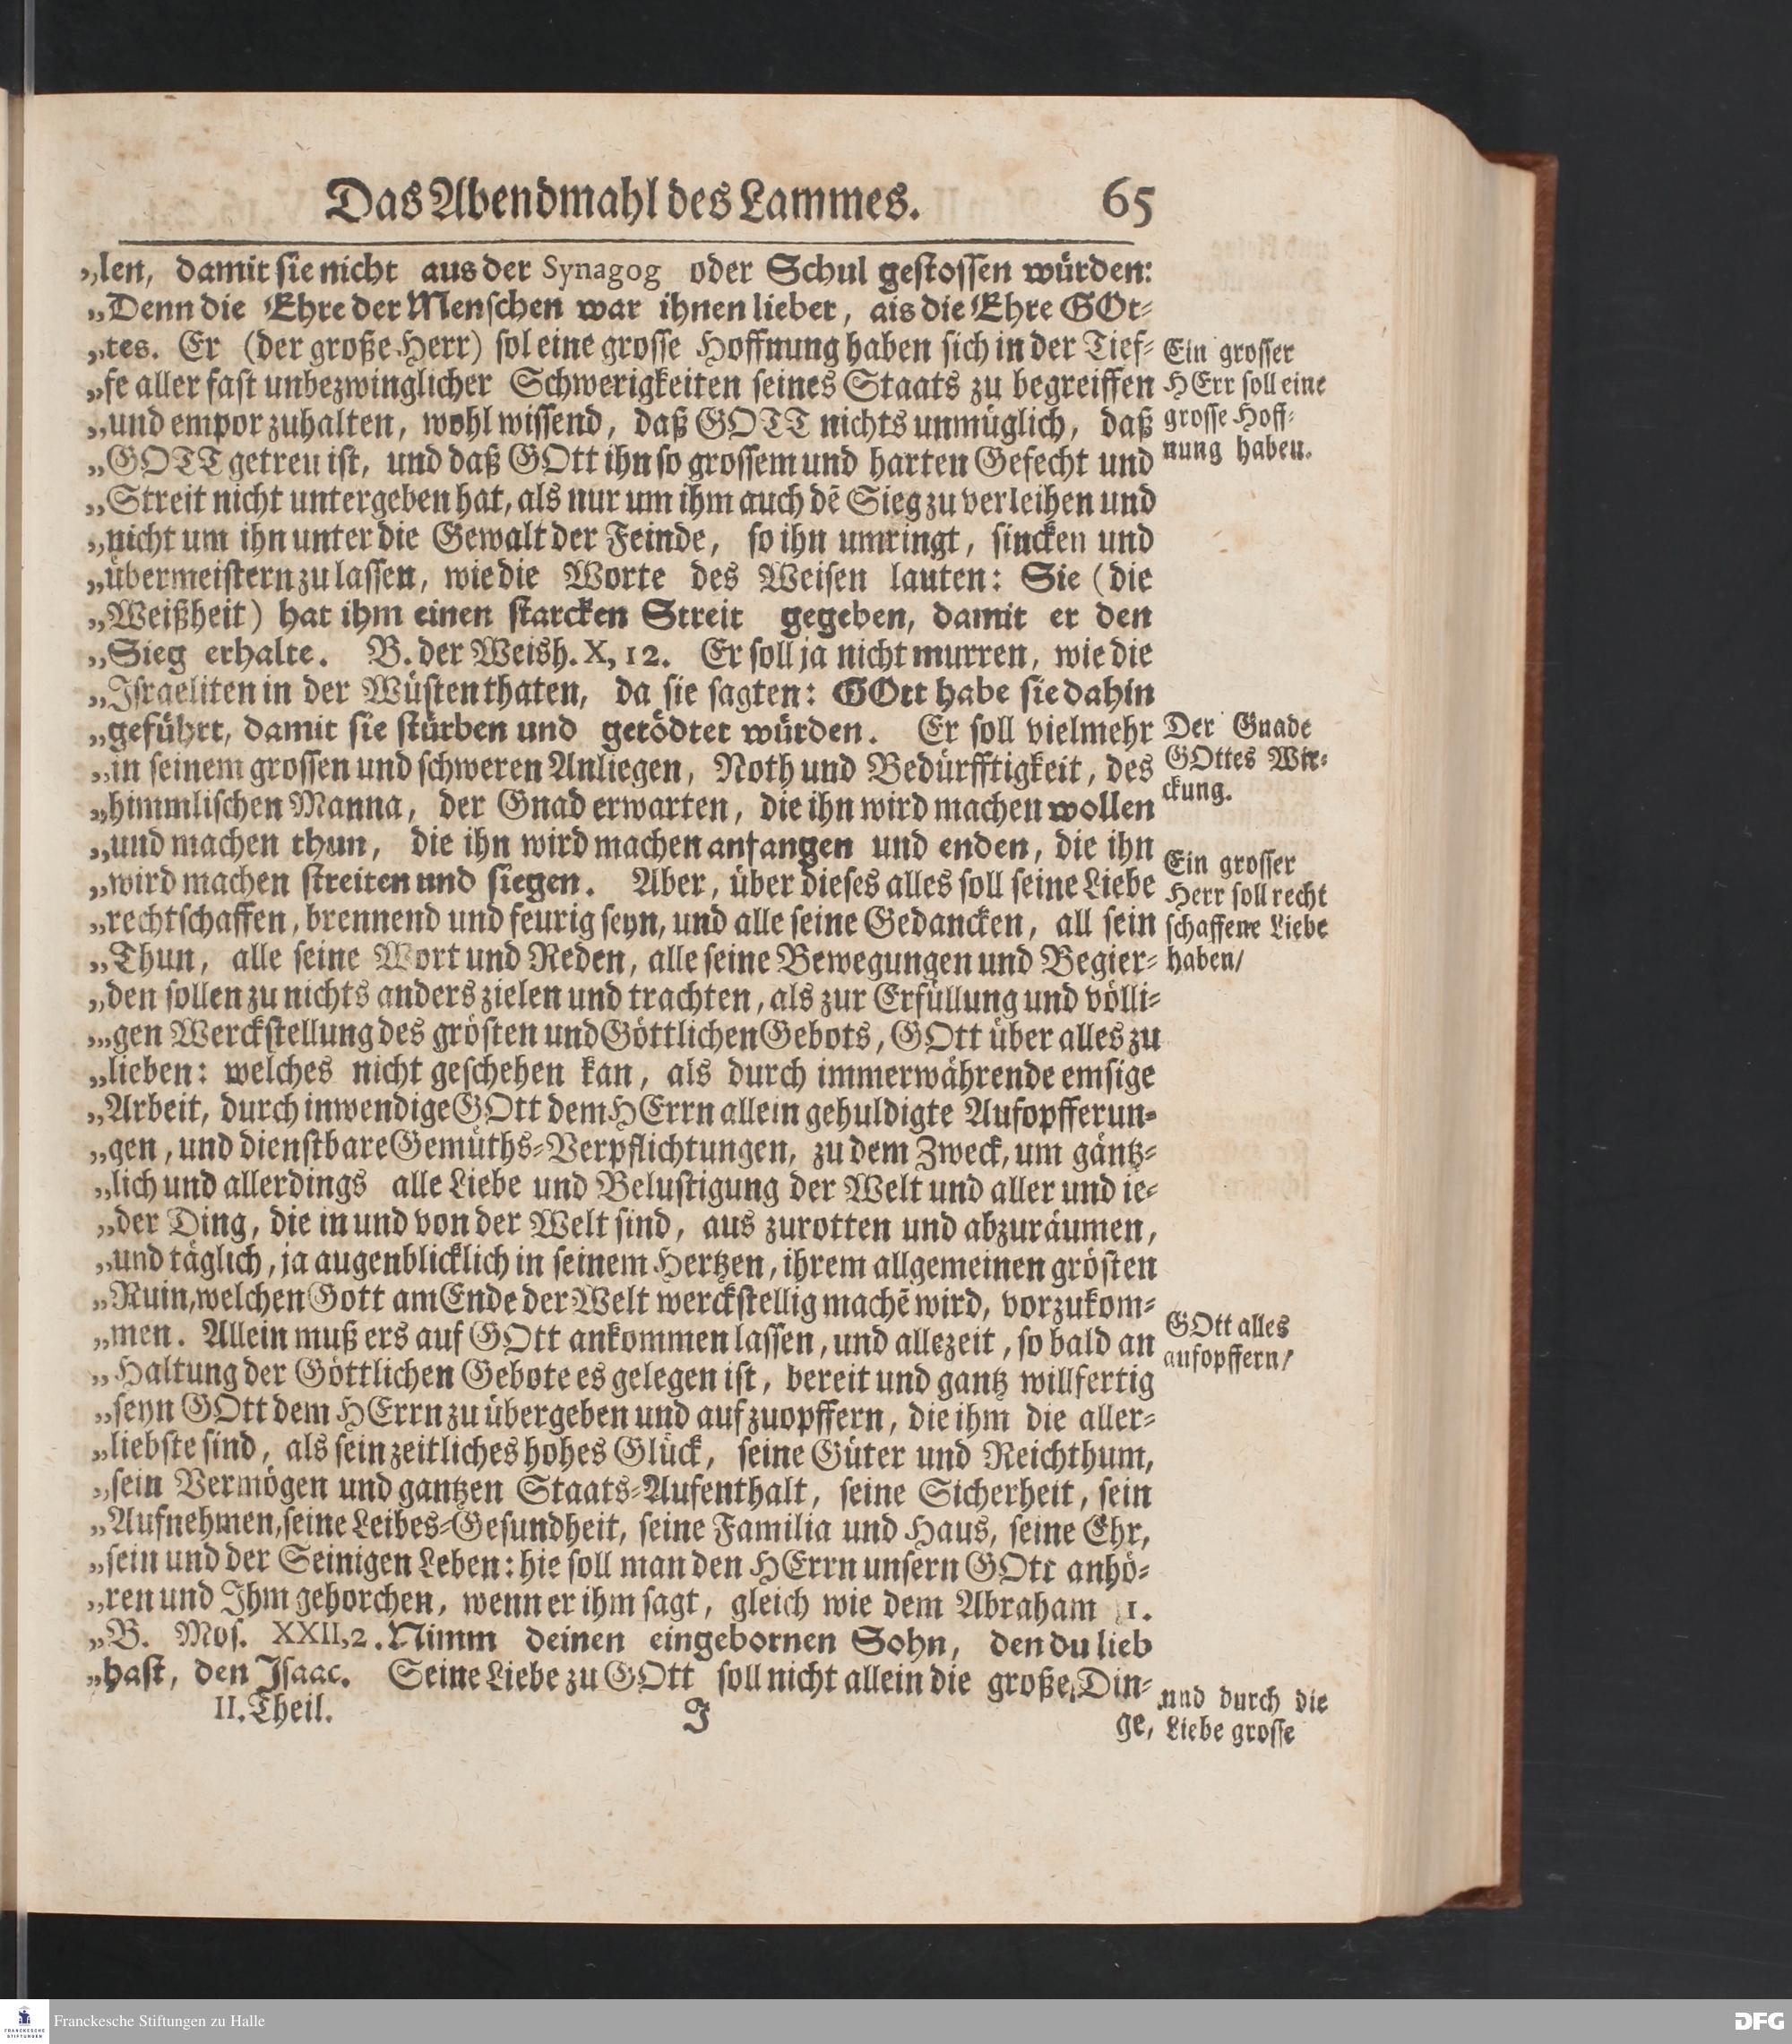 Das Abendmahl des Lammes. 65
„len, damit sie nicht aus der Synagog oder Schul gestossen würden:
„Denn die Ehre der Menschen war ihnen lieber, als die Ehre GOt-
„tes. Er (der große Herr) sol eine grosse Hoffnung haben sich in der Tief-
„fe aller fast unbezwinglicher Schwerigkeiten seines Staats zu begreiffen
„und empor zuhalten, wohl wissend, daß GOTT nichts unmüglich, daß
„GOTT getreu ist, und daß GOtt ihn so grossem und harten Gefecht und
„Streit nicht untergeben hat, als nur um ihm auch dē Sieg zu verleihen und
„nicht um ihn unter die Gewalt der Feinde, so ihn umringt, sincken und
„übermeistern zu lassen, wie die Worte des Weisen lauten: Sie (die
„Weißheit) hat ihm einen starcken Streit gegeben, damit er den
„Sieg erhalte. B. der Weish. X, 12. Er soll ja nicht murren, wie die
„Israeliten in der Wüsten thaten, da sie sagten: GOtt habe sie dahin
„geführt, damit sie stürben und getödtet würden. Er soll vielmehr
„in seinem grossen und schweren Anliegen, Noth und Bedürfftigkeit, des
„himmlischen Manna, der Gnad erwarten, die ihn wird machen wollen
„und machen thun, die ihn wird machen anfangen und enden, die ihn
„wird machen streiten und siegen. Aber, über dieses alles soll seine Liebe
„rechtschaffen, brennend und feurig seyn, und alle seine Gedancken, all sein
„Thun, alle seine Wort und Reden, alle seine Bewegungen und Begier-
„den sollen zu nichts anders zielen und trachten, als zur Erfüllung und völli-
„gen Werckstellung des grösten und Göttlichen Gebots, GOtt über alles zu
„lieben: welches nicht geschehen kan, als durch immerwährende emsige
„Arbeit, durch inwendige GOtt dem HErrn allein gehuldigte Aufopfferun-
„gen, und dienstbare Gemüths-Verpflichtungen, zu dem Zweck, um gäntz-
„lich und allerdings alle Liebe und Belustigung der Welt und aller und ie-
„der Ding, die in und von der Welt sind, aus zurotten und abzuräumen,
„und täglich, ja augenblicklich in seinem Hertzen, ihrem allgemeinen grösten
„Ruin, welchen Gott am Ende der Welt werckstellig machē wird, vorzukom-
„men. Allein muß ers auf GOtt ankommen lassen, und allezeit, so bald an
„Haltung der Göttlichen Gebote es gelegen ist, bereit und gantz willfertig
„seyn GOtt dem HErrn zu übergeben und auf zuopffern, die ihm die aller-
„liebste sind, als sein zeitliches hohes Glück, seine Güter und Reichthum,
„sein Vermögen und gantzen Staats-Aufenthalt, seine Sicherheit, sein
„Aufnehmen, seine Leibes-Gesundheit, seine Familia und Haus, seine Ehr,
„sein und der Seinigen Leben: hie soll man den HErrn unsern GOtt anhö-
„ren und Ihm gehorchen, wenn er ihm sagt, gleich wie dem Abraham 1.
„B. Mos. XXII, 2. Nimm deinen eingebornen Sohn, den du lieb
„hast, den Isaac. Seine Liebe zu GOtt soll nicht allein die große Din-
II. Theil. J ge,
Ein grosser
HErr soll eine
grosse Hoff-
nung haben.
Der Gnade
GOttes Wir-
ckung.
Ein grosser
Herr soll recht
schaffene Liebe
haben/
GOtt alles
aufopffern/
und durch die
Liebe grosse
FRANCKESCHE
STIFTUNGEN
Franckesche Stiftungen zu Halle
DFG